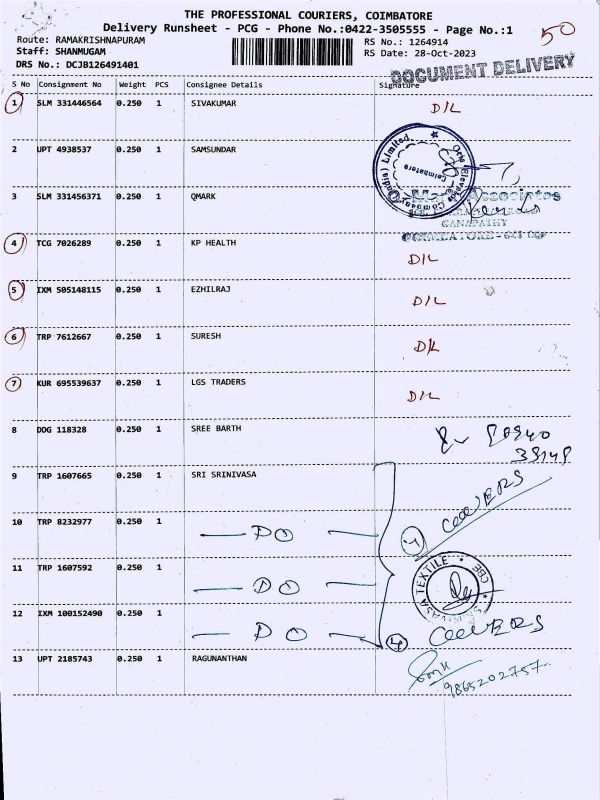 THE PROFESSIONAL COURIERS, COIMBATORE
Delivery Runsheet - PCG - Phone No.:0422-3505555 - Page No.:1
50
Route: RAMAKRISHNAPURAM
RS No.: 1264914
Staff: SHANMUGAM
RS Date: 28-Oct-2023
DRS No.: DCJB126491401
DOCUMENT DELIVERY
S No Consignment No Weight PCS Consignee Details Signature
1 SLM 331446564 0.250 1 SIVAKUMAR D/L
2 UPT 4938537 0.250 1 SAMSUNDAR
3 SLM 331456371 0.250 1 QMARK
Associates
GANAPATHY
4 TCG 7026289 0.250 1 KP HEALTH D/L
5 IXM 505148115 0.250 1 EZHILRAJ D/L
6 TRP 7612667 0.250 1 SURESH D/L
7 KUR 695539637 0.250 1 LGS TRADERS D/L
8 DDG 118328 0.250 1 SREE BARTH
9 TRP 1607665 0.250 1 SRI SRINIVASA
10 TRP 8232977 0.250 1 — DO — 4 COVERS
11 TRP 1607592 0.250 1 — DO —
TEXTILE CBE
12 IXM 100152490 0.250 1 — DO — 4 COVERS
13 UPT 2185743 0.250 1 RAGUNANTHAN
9865202757